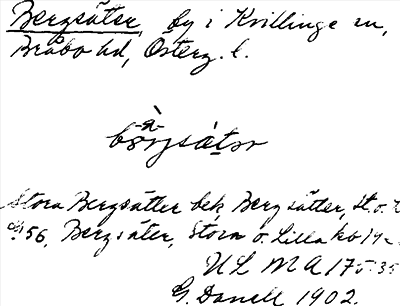 Bergsäter, by i Kvillinge sn,
Bråbo hd, Österg. l.
-a-
Stora Bergsätter bek Berg sätter, St. o.
56. Bergsäter, Stora o. Lilla kb
ULMA 175:35
G. Danell 1902.